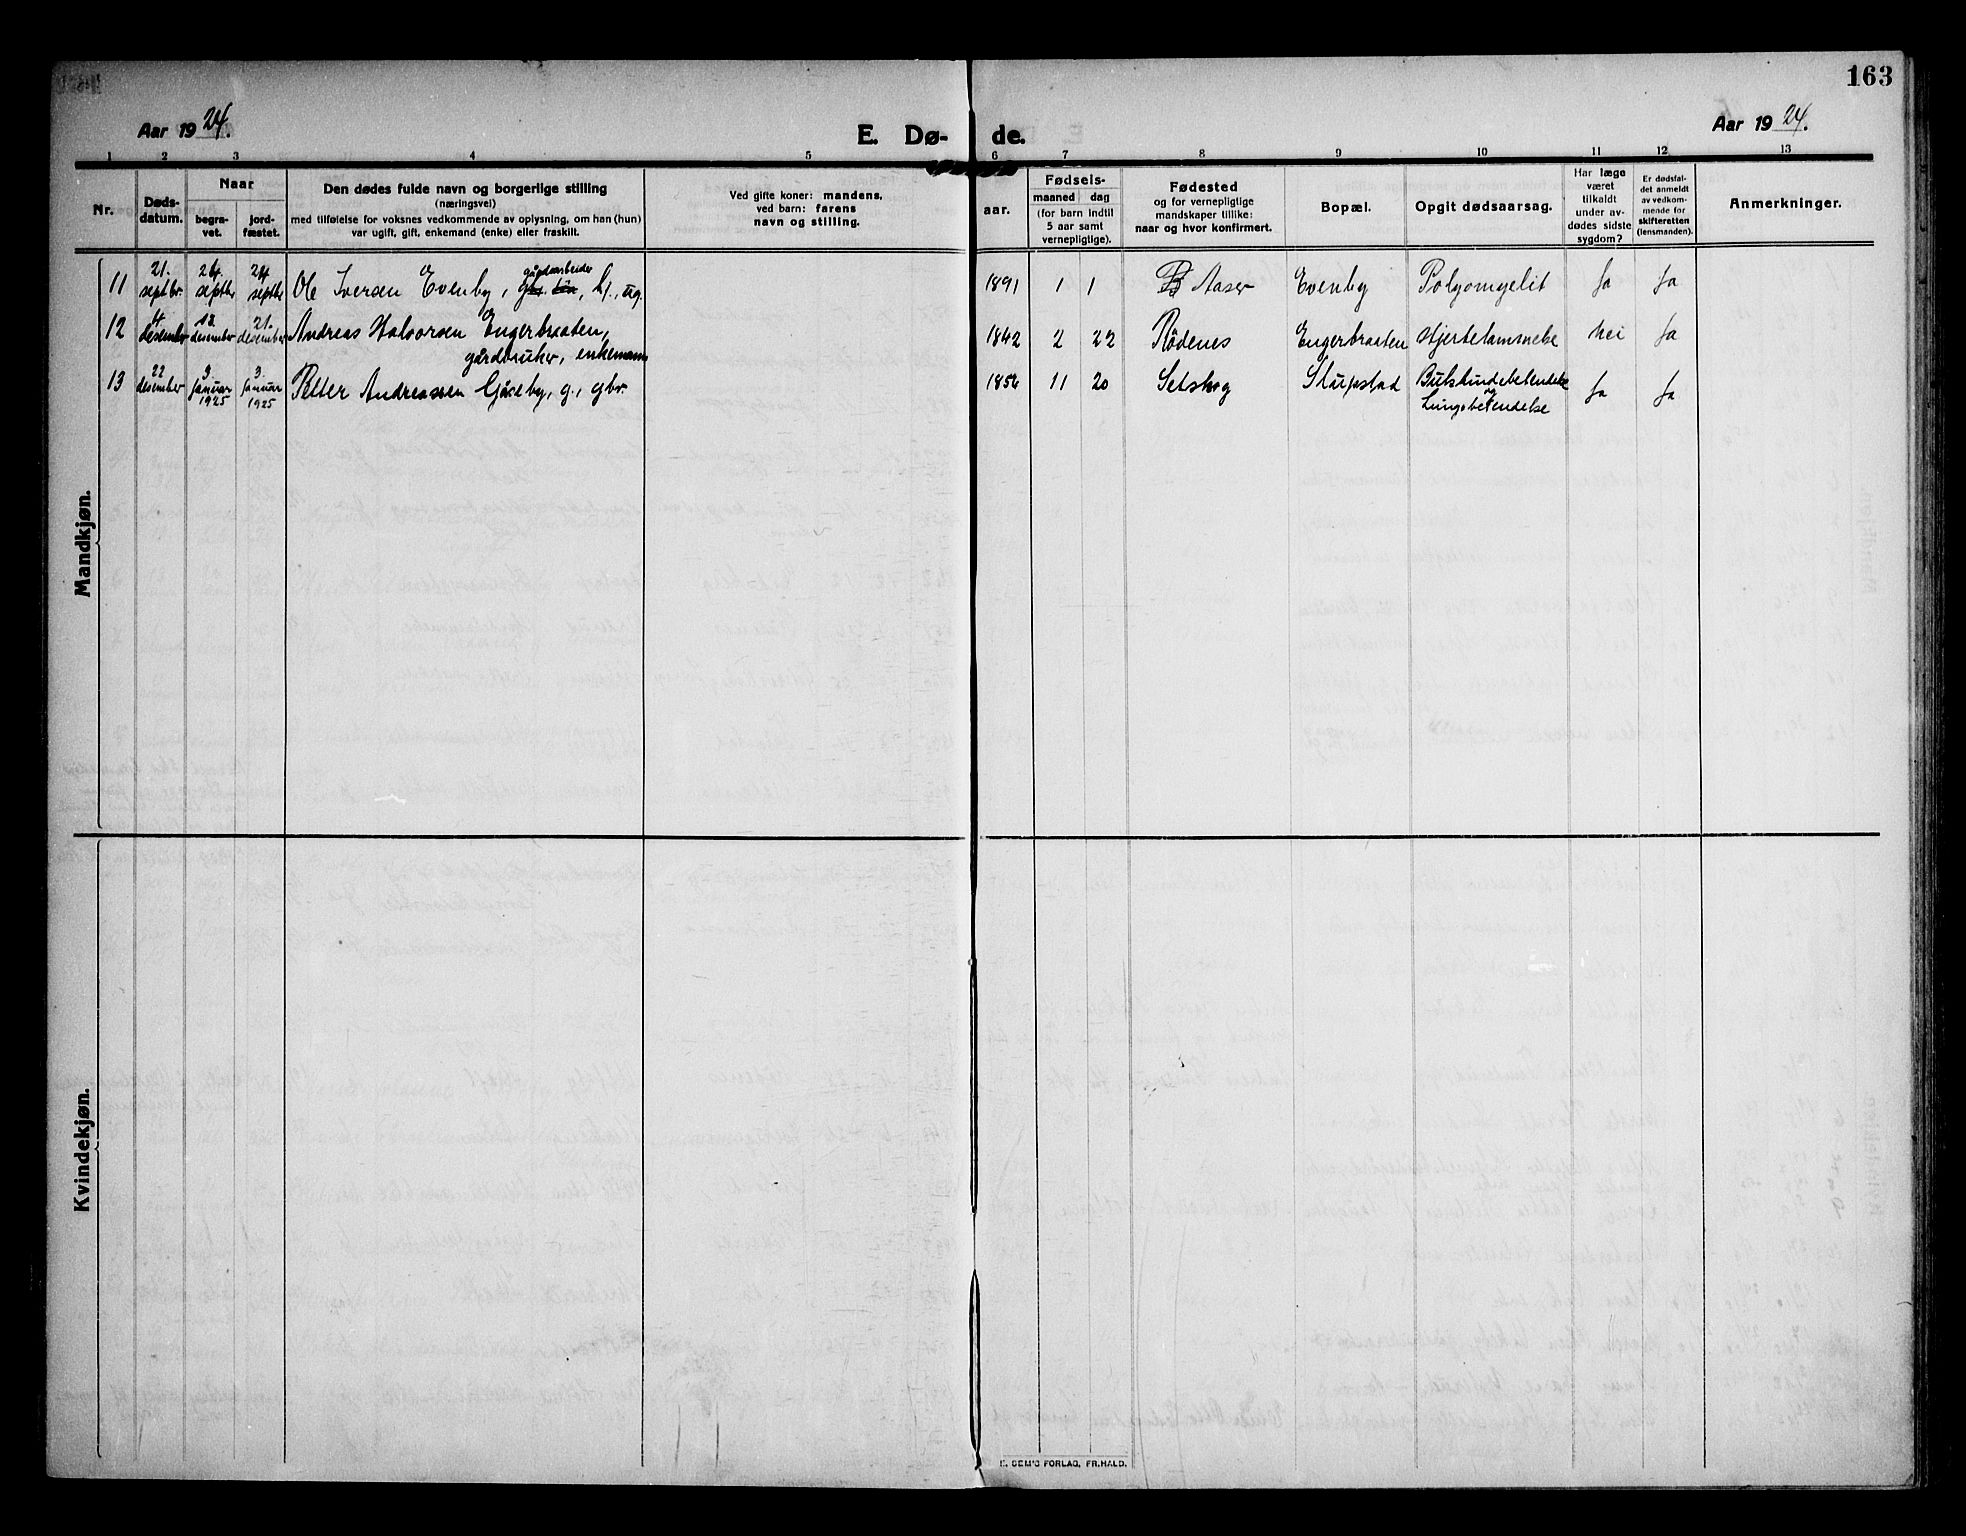 163
Aar 1924.
E. Dø-
de.
Aar 1924.
1 2 3 4 5 6 7 8 9 10 11 12 13
Nr.
Døds-
datum.
Naar
begra-
vet.
jord-
fæstet.
Den dødes fulde navn og borgerlige stilling
(næringsvei)
med tilføielse for voksnes vedkommende av oplysning, om han (hun)
var ugift, gift, enkemand (enke) eller fraskilt.
Ved gifte koner: mandens,
ved barn: farens
navn og stilling.
Fødsels-
aar.
maaned dag
(for barn indtil
5 aar samt
vernepligtige).
Fødested
og for vernepligtige
mandskaper tillike:
naar og hvor konfirmert.
Bopæl.
Opgit dødsaarsag.
Har læge
været
tilkaldt
under av-
dødes sidste
sygdom?
Er dødsfal-
det anmeldt
av vedkom-
mende for
skifteretten
(lensmanden).
Anmerkninger.
Mandkjøn.
11 21. septbr. 24. septbr 24 septbr Ole Iversen Evenby, gårdsarbeider, ug. 1891 1 1 Aaser Evenby Polyomyelit Ja Ja
12 4. desember 13. desember 21. desember Andreas Halvorsen Engerbraaten,
gårdbruker, enkemann 1842 2 22 Rödenes Engerbraaten Hjertelammelse Nei Ja
13 22 desember 3. januar 1925 3. januar 1925 Petter Andreassen Gåseby, g., gbr. 1856 11 20 Setskog Slupstad Bukhindebetendelse
og
Lungebetendelse Ja Ja
Kvindekjøn.
E. SEM'S FORLAG, FR.HALD.